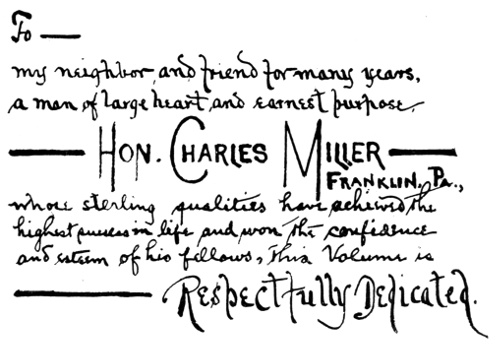 To —
my neighbor and friend for many years,
a man of large heart and earnest purpose,
— HON. CHARLES MILLER —
FRANKLIN, Pa.,
whose sterling qualities have achieved the
highest success in life and won the confidence
and esteem of his fellows, this Volume is
— Respectfully Dedicated.